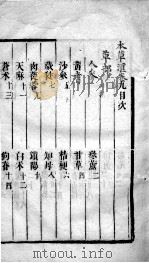 本草滙卷九目次
草部
人參
參蘆二
黃耆
甘草四
沙參五
桔梗六
七
知母八
肉蓯蓉九
鎖陽十
天麻十一
白朮十二
蒼朮十三
狗脊十四